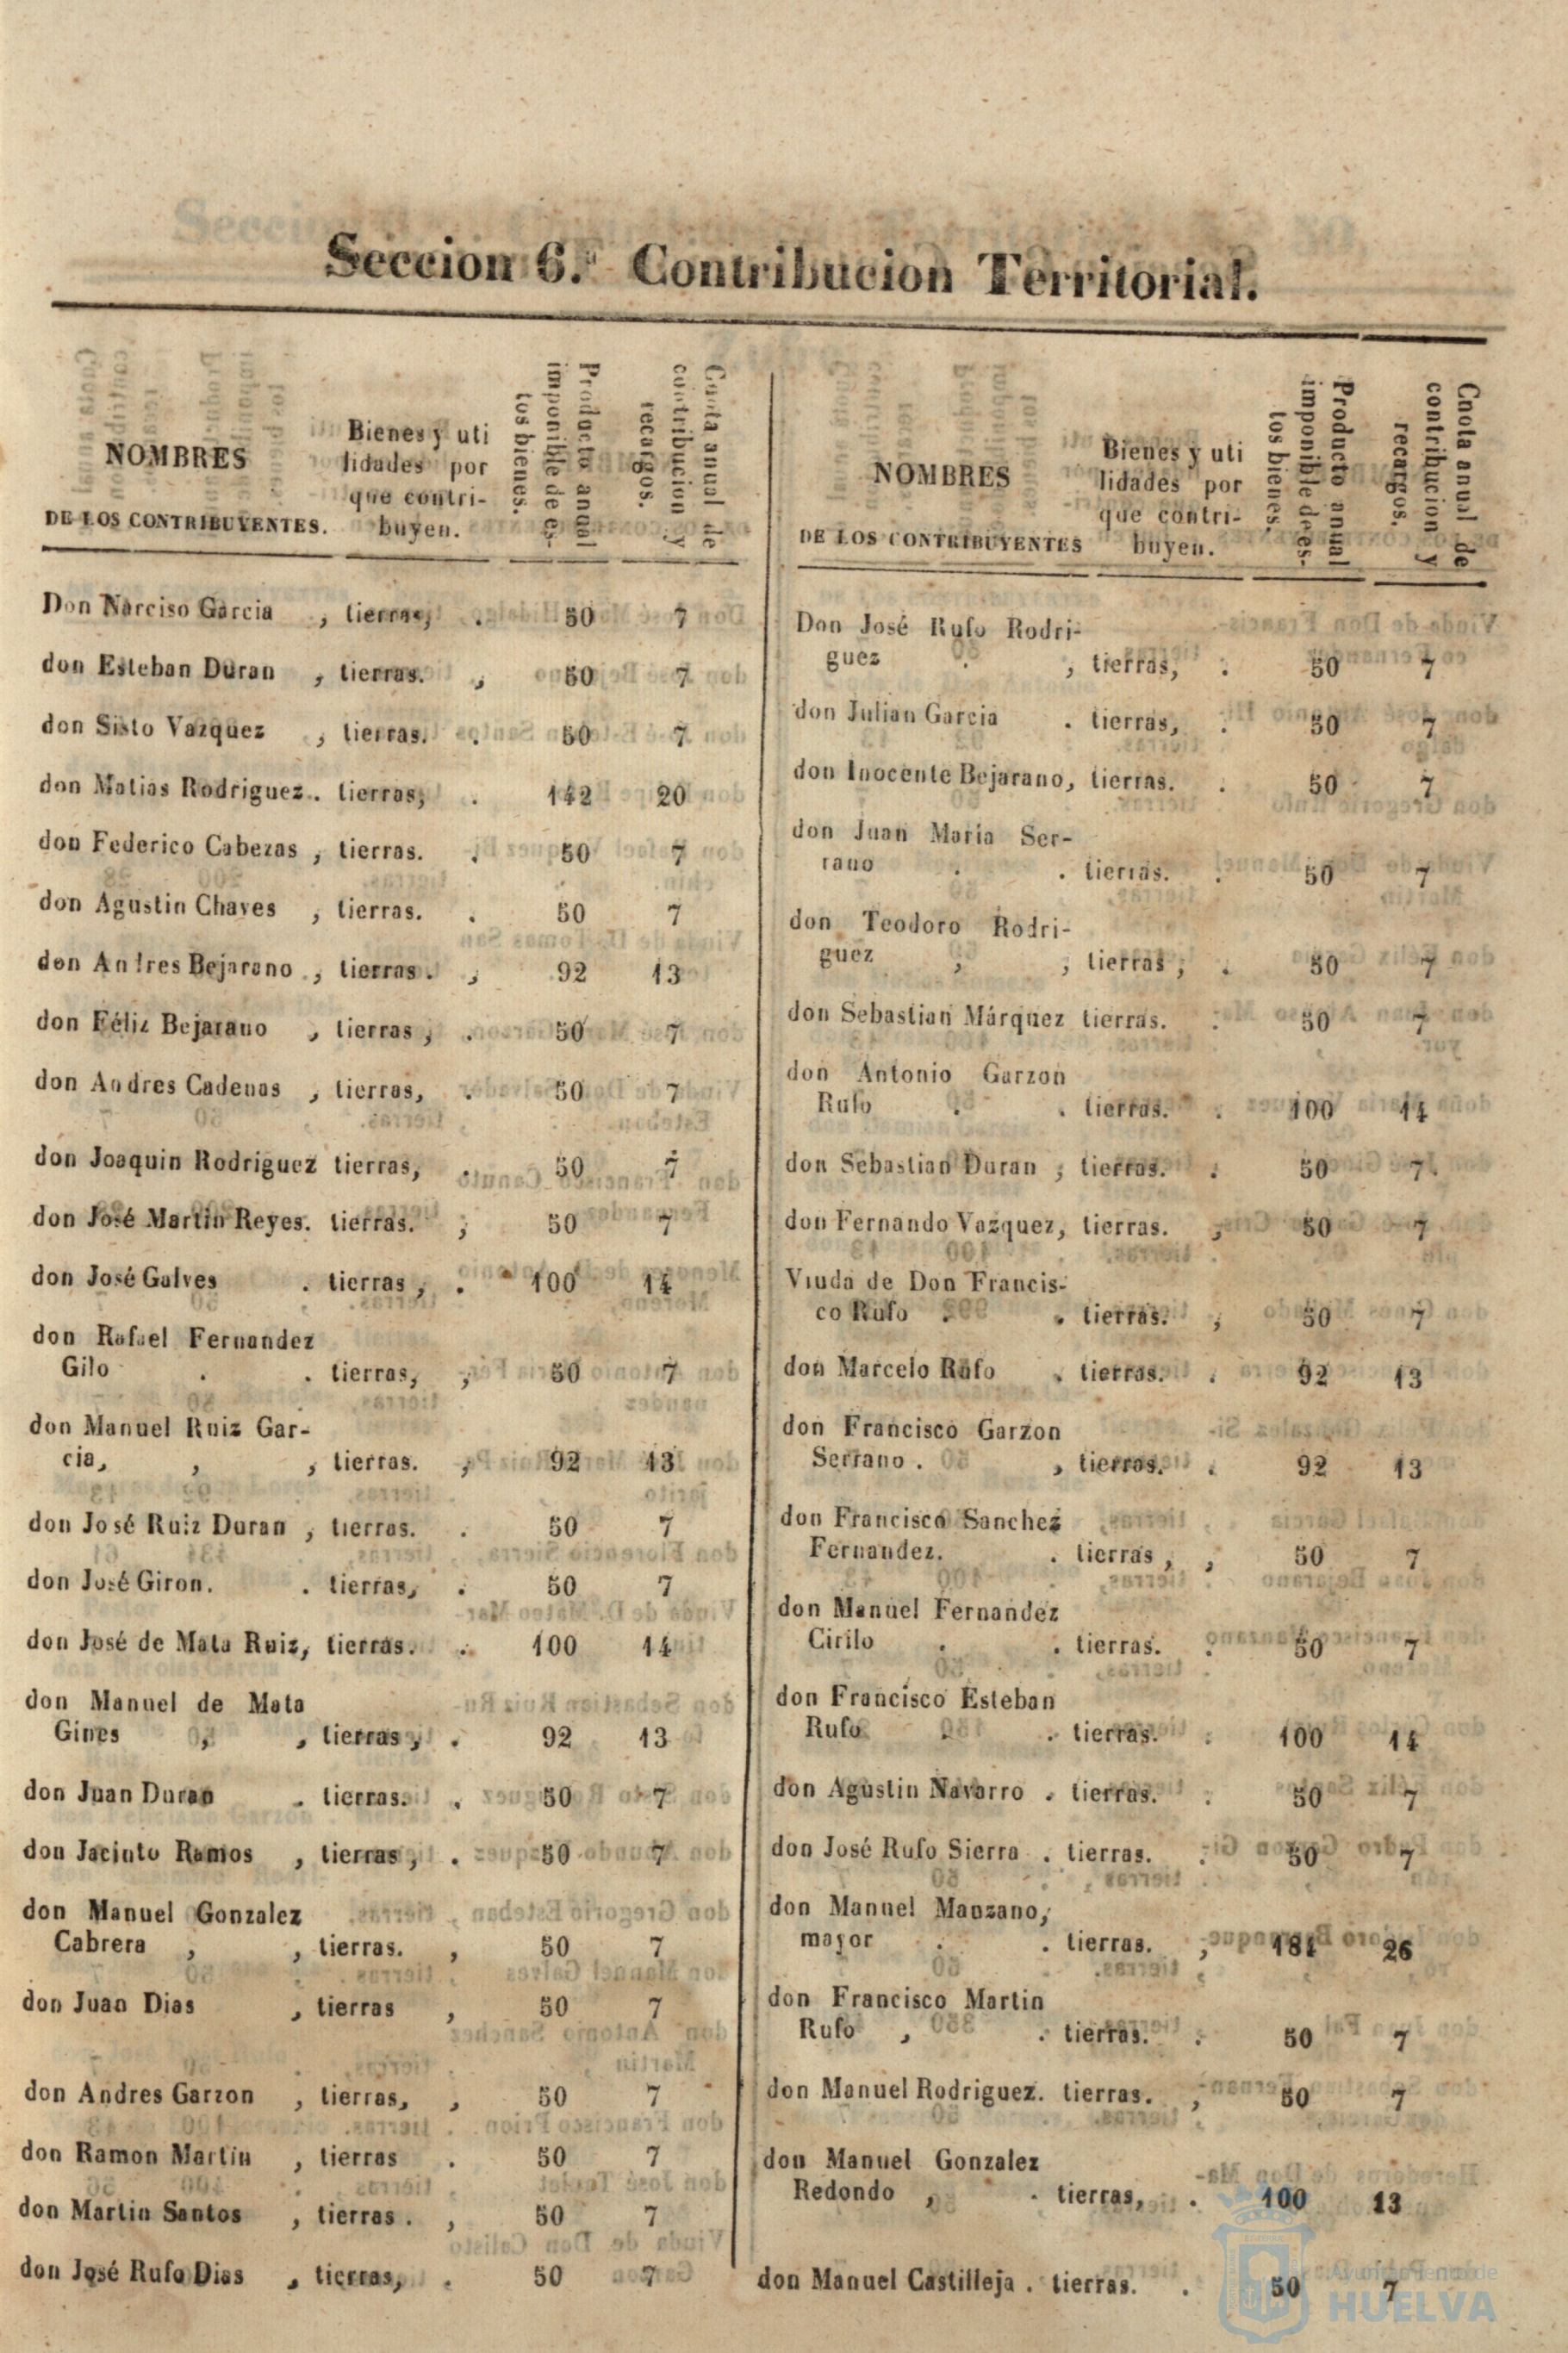 Seccion 6.ª Contribucion Territorial.
NOMBRES
DE LOS CONTRIBUYENTES.
Bienes y uti
lidades por
que contri-
buyen.
Producto anual
imponible de es-
tos bienes.
Cuota anual de
contribucion y
recargos.
Don Narciso Garcia , tierras, . 50 7
don Esteban Duran , tierras. , 50 7
don Sisto Vazquez , tierras. . 50 7
don Matias Rodriguez. . tierras, . 142 20
don Federico Cabezas , tierras. . 50 7
don Agustin Chaves , tierras. . 50 7
don Andres Bejarano , tierras. , 92 13
don Féliz Bejarano , tierras , . 50 7
don Andres Cadenas , tierras, . 50 7
don Joaquin Rodriguez tierras, . 50 7
don José Martin Reyes. tierras. , 50 7
don José Galves . tierras , . 100 14
don Rafael Fernandez
Gilo . . tierras, , 50 7
don Manuel Ruiz Gar-
cia, , , tierras. , 92 13
don José Ruiz Duran , tierras. . 50 7
don José Giron. . tierras, . 50 7
don José de Mata Ruiz, tierras. . 100 14
don Manuel de Mata
Gines , , tierras , . 92 13
don Juan Duran . tierras. . 50 7
don Jacinto Ramos , tierras , . 50 7
don Manuel Gonzalez
Cabrera , , tierras. , 50 7
don Juan Dias , tierras , 50 7
don Andres Garzon , tierras, , 50 7
don Ramon Martin , tierras . 50 7
don Martin Santos , tierras . , 50 7
don José Rufo Dias , tierras, . 50 7
NOMBRES
DE LOS CONTRIBUYENTES
Bienes y uti
lidades por
que contri-
buyen.
Producto anual
imponible de es-
tos bienes.
Cnota anual de
contribucion y
recargos.
Don José Rufo Rodri-
guez . , tierras, . 50 7
don Julian Garcia . tierras, . 50 7
don Inocente Bejarano, tierras. . 50 7
don Juan Maria Ser-
rano . . tierras. . 50 7
don Teodoro Rodri-
guez , , tierras , . 50 7
don Sebastian Márquez tierras. . 50 7
don Antonio Garzon
Rufo . . tierras. . 100 14
don Sebastian Duran , tierras. . 50 7.
don Fernando Vazquez, tierras. , 50 7
Viuda de Don Francis-
co Rufo . . tierras. , 50 7
don Marcelo Rufo . tierras. . 92 13
don Francisco Garzon
Serrano . , tierras. . 92 13
don Francisco Sanchez
Fernandez. . tierras , , 50 7
don Manuel Fernandez
Cirilo . . tierras. . 50 7
don Francisco Esteban
Rufo . . tierras. . 100 14
don Agustin Navarro . tierras. . 50 7
don José Rufo Sierra . tierras. . 50 7
don Manuel Manzano,
mayor . . tierras. , 184 26
don Francisco Martin
Rufo , . tierras. . 50 7
don Manuel Rodriguez. tierras. , 50 7
don Manuel Gonzalez
Redondo , . tierras, . 100 13
don Manuel Castilleja . tierras. . 50 7
Ayuntamiento de
HUELVA